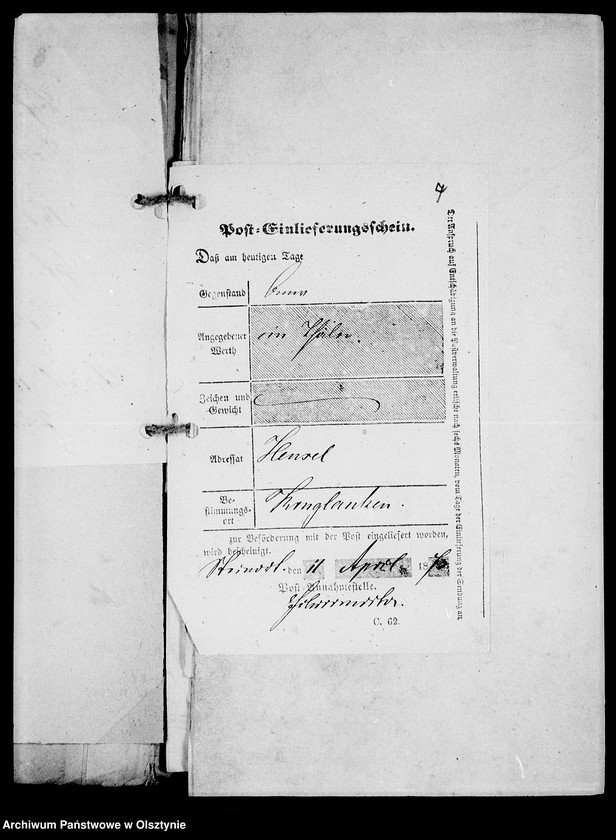 7
Post-Einlieferungsschein.
Daß am heutigen Tage
Gegenstand
Angegebener Werth
ein Thaler.
Zeichen und Gewicht
Adressat
Hensel
Bestimmungsort
zur Beförderung mit der Post eingeliefert worden,
wird bescheinigt.
den 11 April 18
Post-Annahmestelle.
C. 62.
Der Anspruch auf Entschädigung an die Postverwaltung erlischt nach sechs Monaten, vom Tage der Einlieferung der Sendung an.
Archiwum Państwowe w Olsztynie